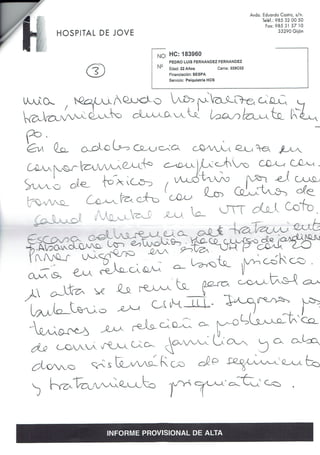 Avda. Eduardo Castro, s/n.
Telf.: 985 32 00 50
Fax: 985 31 57 10
33290 Gijón
HOSPITAL DE JOVE
3
NO: HC: 183960
PEDRO LUIS FERNANDEZ FERNANDEZ
Nº Edad: 22 Años Cama:
Financiación: SESPA
Servicio: Psiquiatría HOS
mia, requiriendo hospitalización y
tratamiento durante bastante tiem
po.
En la adolescencia comienza en
comportamiento conflictivo con con
sumo de tóxicos, motivo por el cual
toma contacto con los Centros de
Salud Mental en la UTT del Coto.
Escasa adherencia al tratamiento
Abandona los estudios, hace curso de jardinero
Primer ingreso en esta UHP con 20
años en relación a brote psicótico.
Al alta se le remite para control am
bulatorio en CSM II. Ingresos pos
teriores en relación a problemática
de convivencia familiar y a aban
dono sistemático de seguimiento
y tratamiento psiquiátrico.
INFORME PROVISIONAL DE ALTA